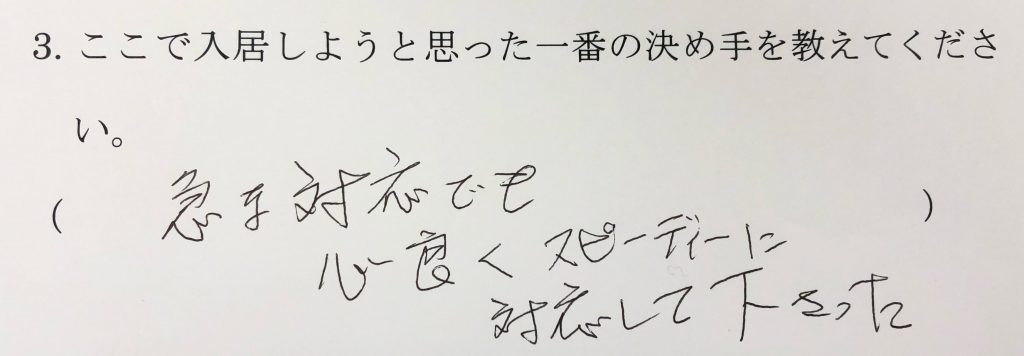 3. ここで入居しようと思った一番の決め手を教えてくださ
い。
( 急な対応でも )
心良くスピーディーに
対応して下さった